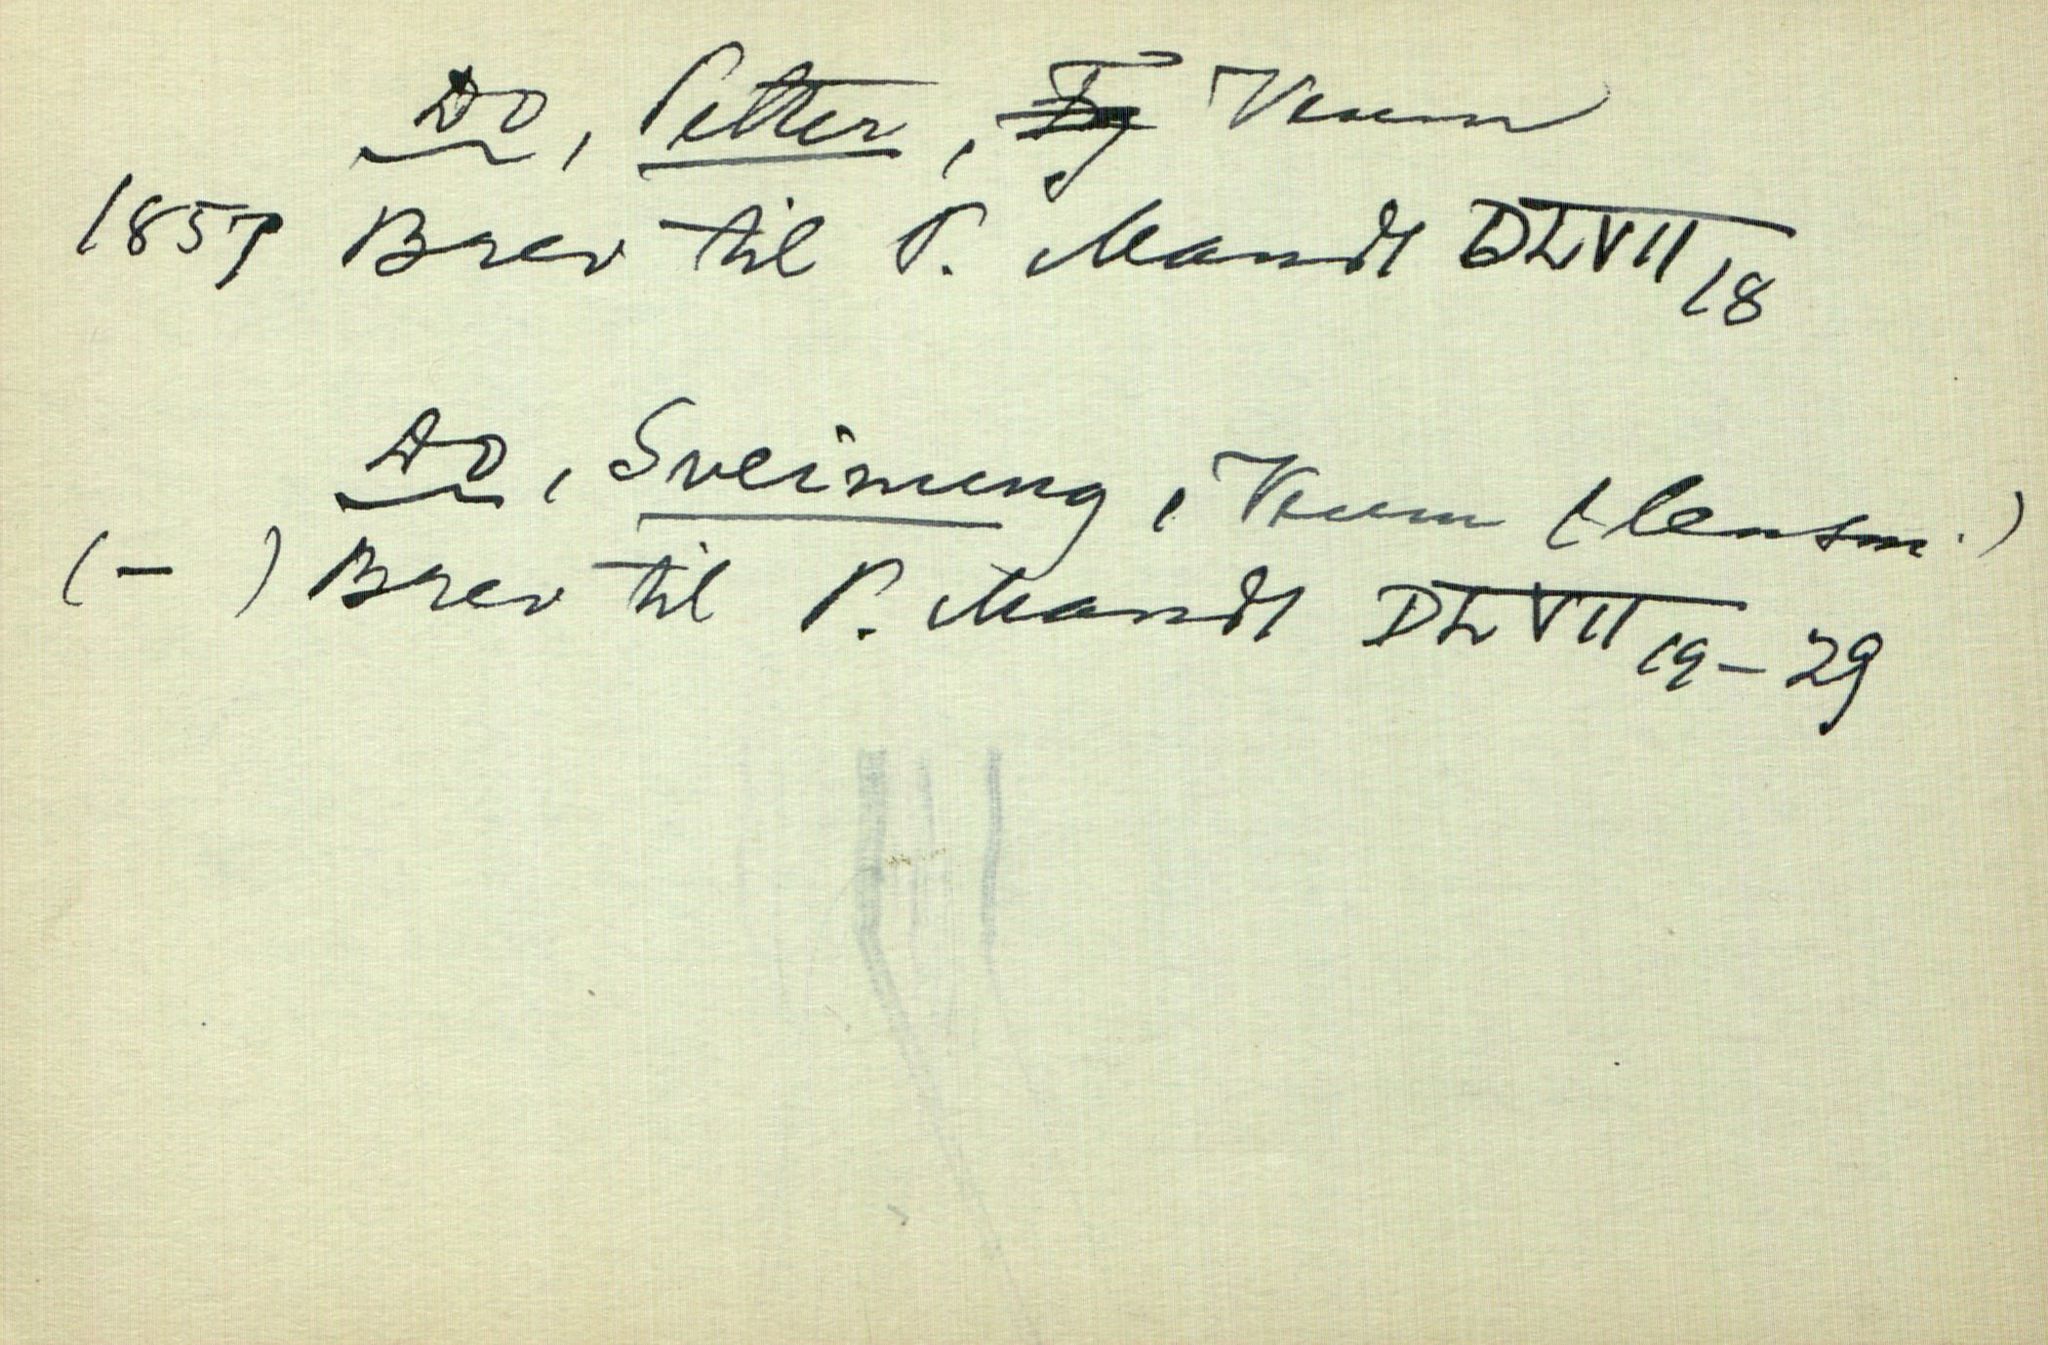 Do, Petter, Veum
1857 Brev til P. Mandt DL VII 18
Do, Sveinung, Veum (lensm.)
(-) Brev til P. Mandt DL VII 19-29